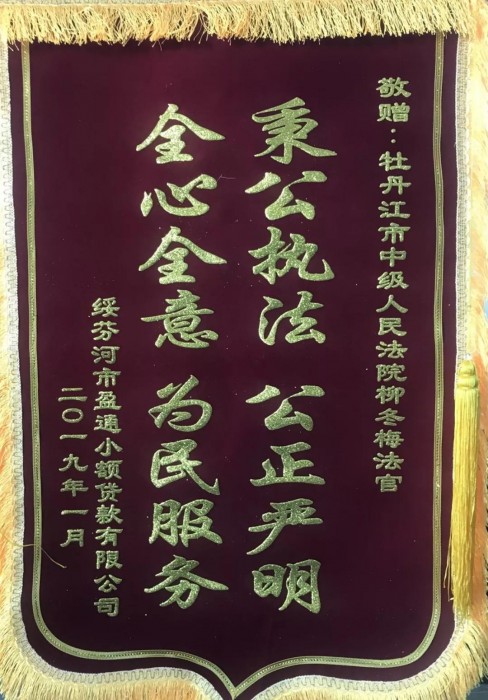 敬赠：牡丹江市中级人民法院柳冬梅法官
秉公执法 公正严明
全心全意 为民服务
绥芬河市盈通小额贷款有限公司
二〇一九年一月